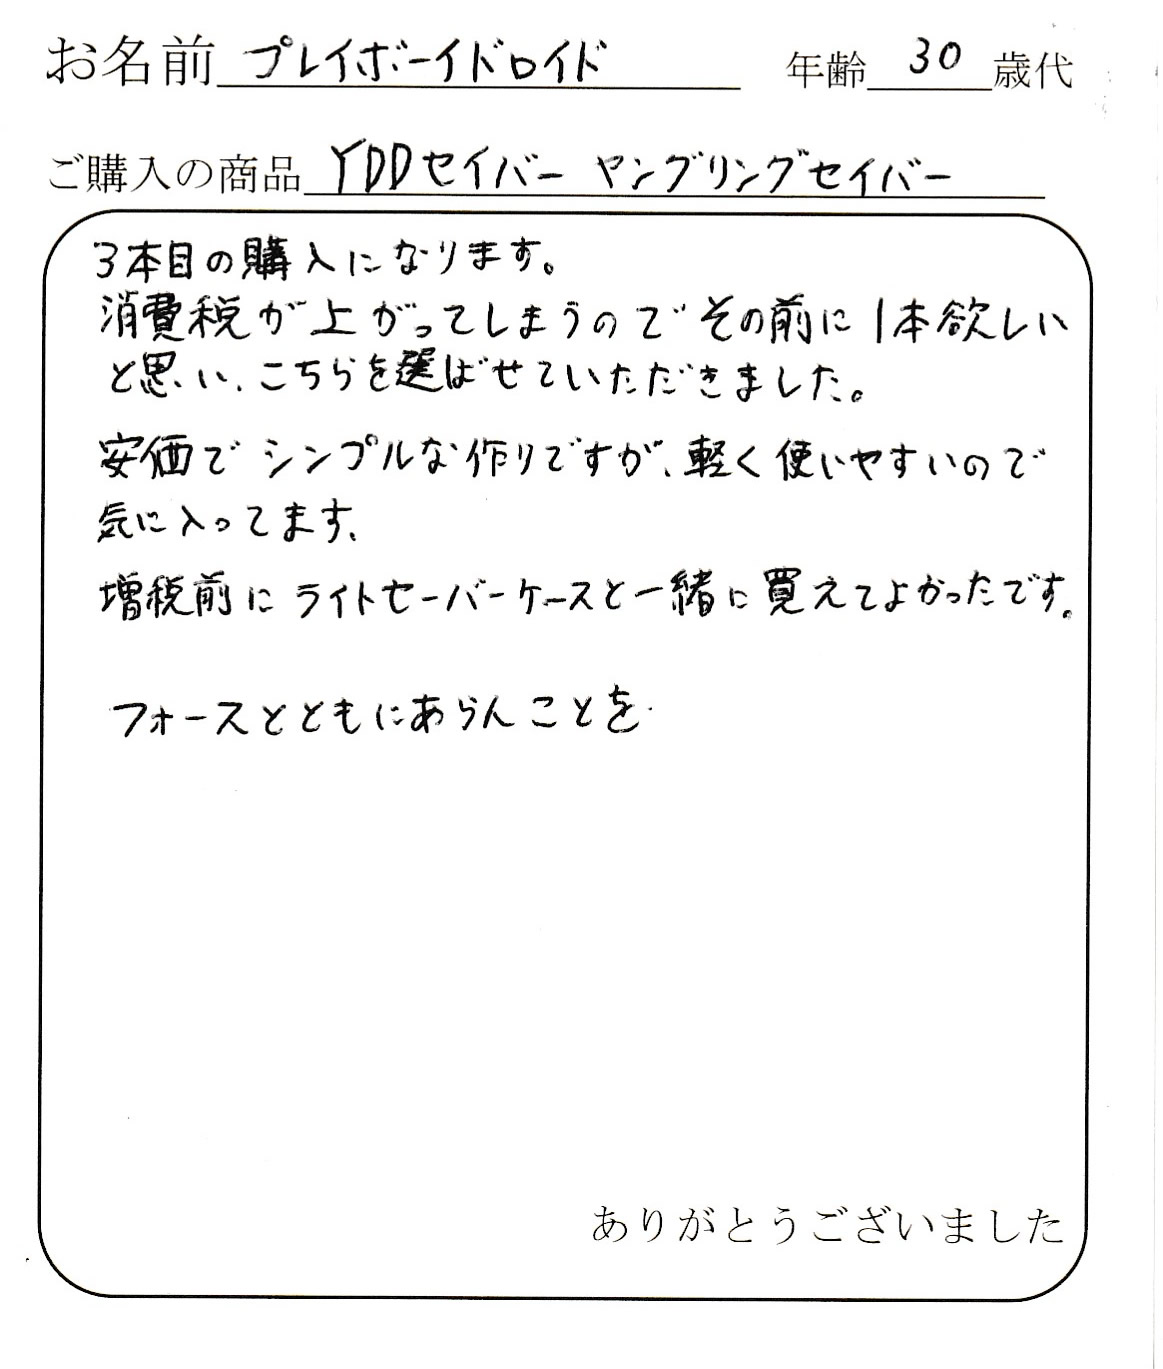 お名前 プレイボーイドロイド 年齢 30 歳代
ご購入の商品 YDDセイバー ヤングリングセイバー
3本目の購入になります。
消費税が上がってしまうのでその前に1本欲しい
と思い、こちらを選ばせていただきました。
安価でシンプルな作りですが、軽く使いやすいので
気に入ってます。
増税前にライトセーバーケースと一緒に買えてよかったです。
フォースとともにあらんことを
ありがとうございました